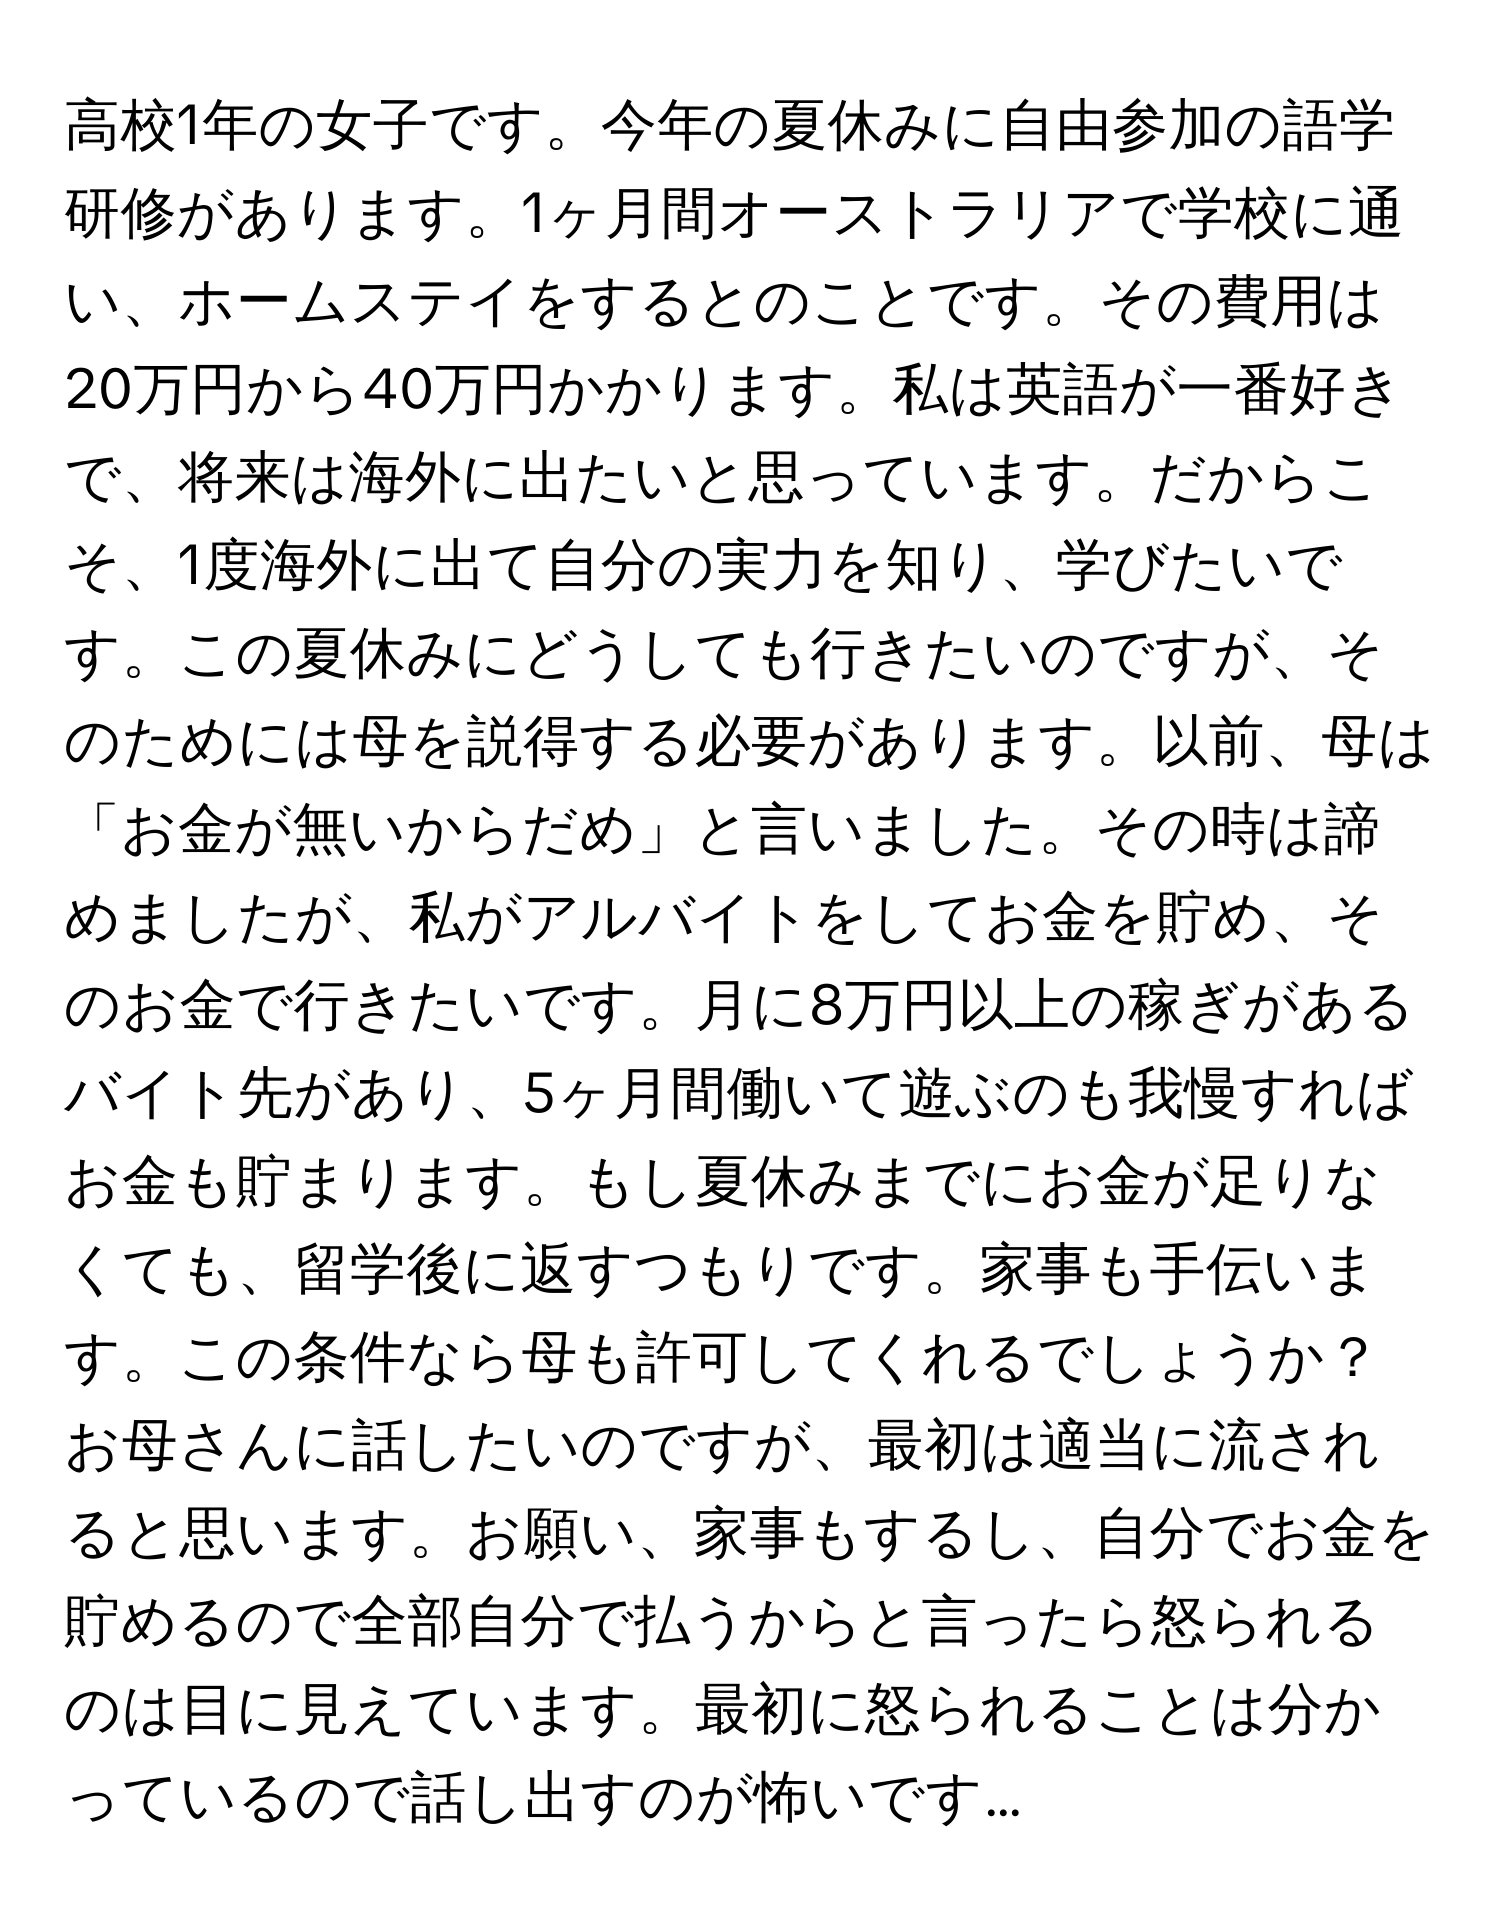 高校1年の女子です。今年の夏休みに自由参加の語学
研修があります。1ヶ月間オーストラリアで学校に通
い、ホームステイをするとのことです。その費用は
20万円から40万円かかります。私は英語が一番好き
で、将来は海外に出たいと思っています。だからこ
そ、1度海外に出て自分の実力を知り、学びたいで
す。この夏休みにどうしても行きたいのですが、そ
のためには母を説得する必要があります。以前、母は
「お金が無いからだめ」と言いました。その時は諦
めましたが、私がアルバイトをしてお金を貯め、そ
のお金で行きたいです。月に8万円以上の稼ぎがある
バイト先があり、5ヶ月間働いて遊ぶのも我慢すれば
お金も貯まります。もし夏休みまでにお金が足りな
くても、留学後に返すつもりです。家事も手伝いま
す。この条件なら母も許可してくれるでしょうか？
お母さんに話したいのですが、最初は適当に流され
ると思います。お願い、家事もするし、自分でお金を
貯めるので全部自分で払うからと言ったら怒られる
のは目に見えています。最初に怒られることは分か
っているので話し出すのが怖いです…